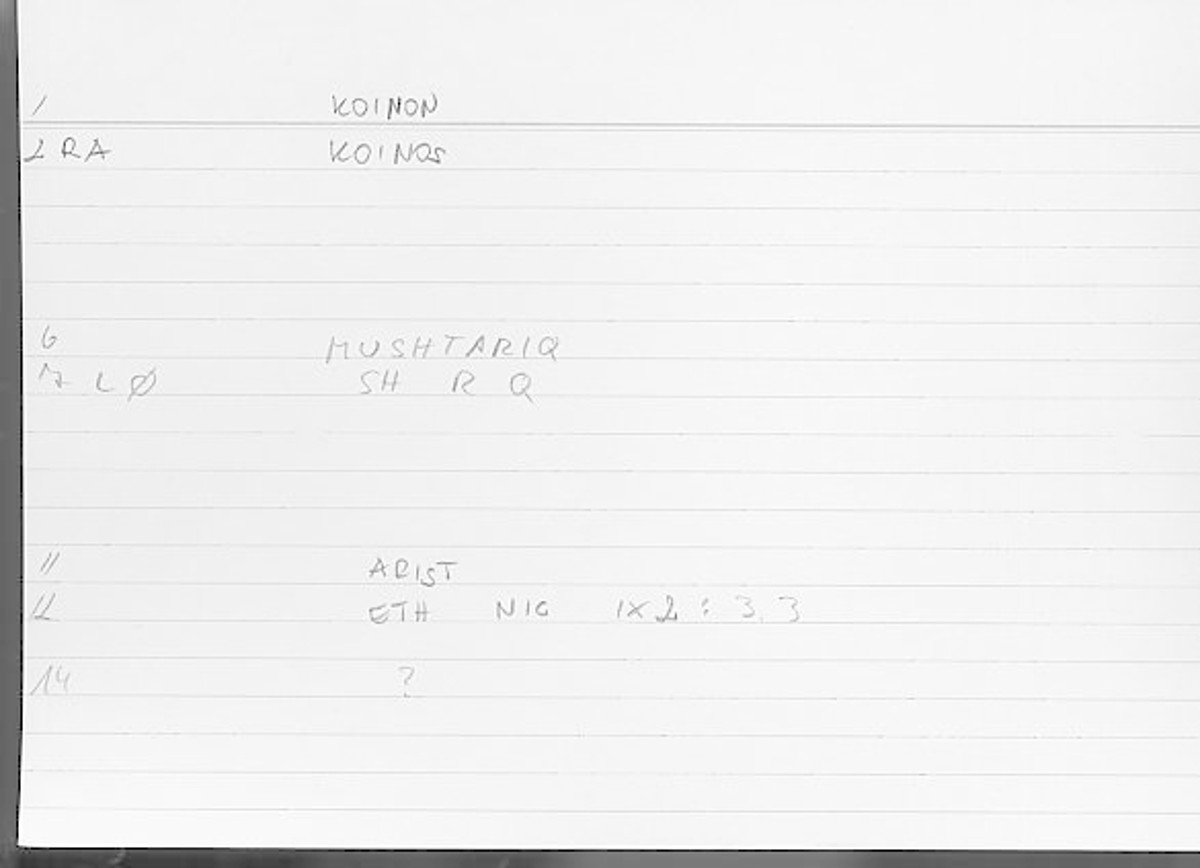 1 KOINON
2 RA KOINOS
6 MUSHTARIQ
7 L Ø SH R Q
11 ARIST
12 ETH NIC IX 2 : 3. 3
14 ?